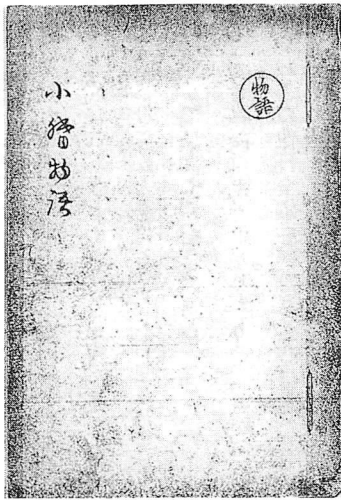 物語
小督物語